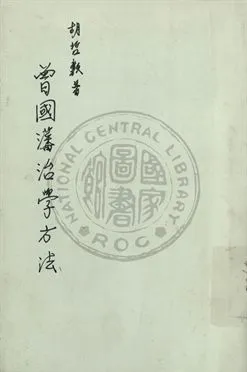 胡哲敷著
曾國藩治學方法
NATIONAL CENTRAL LIBRARY
國家圖書館
ROC